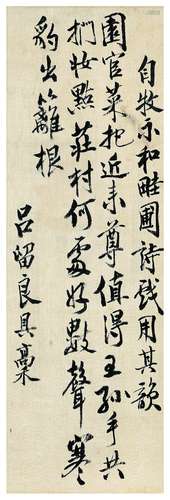 自牧示和畦圃詩戲用其韻
園官菜把近来尊值得王孫手共
捫妝點莊村何處好數聲寒
豹出籬根
呂留良具稾